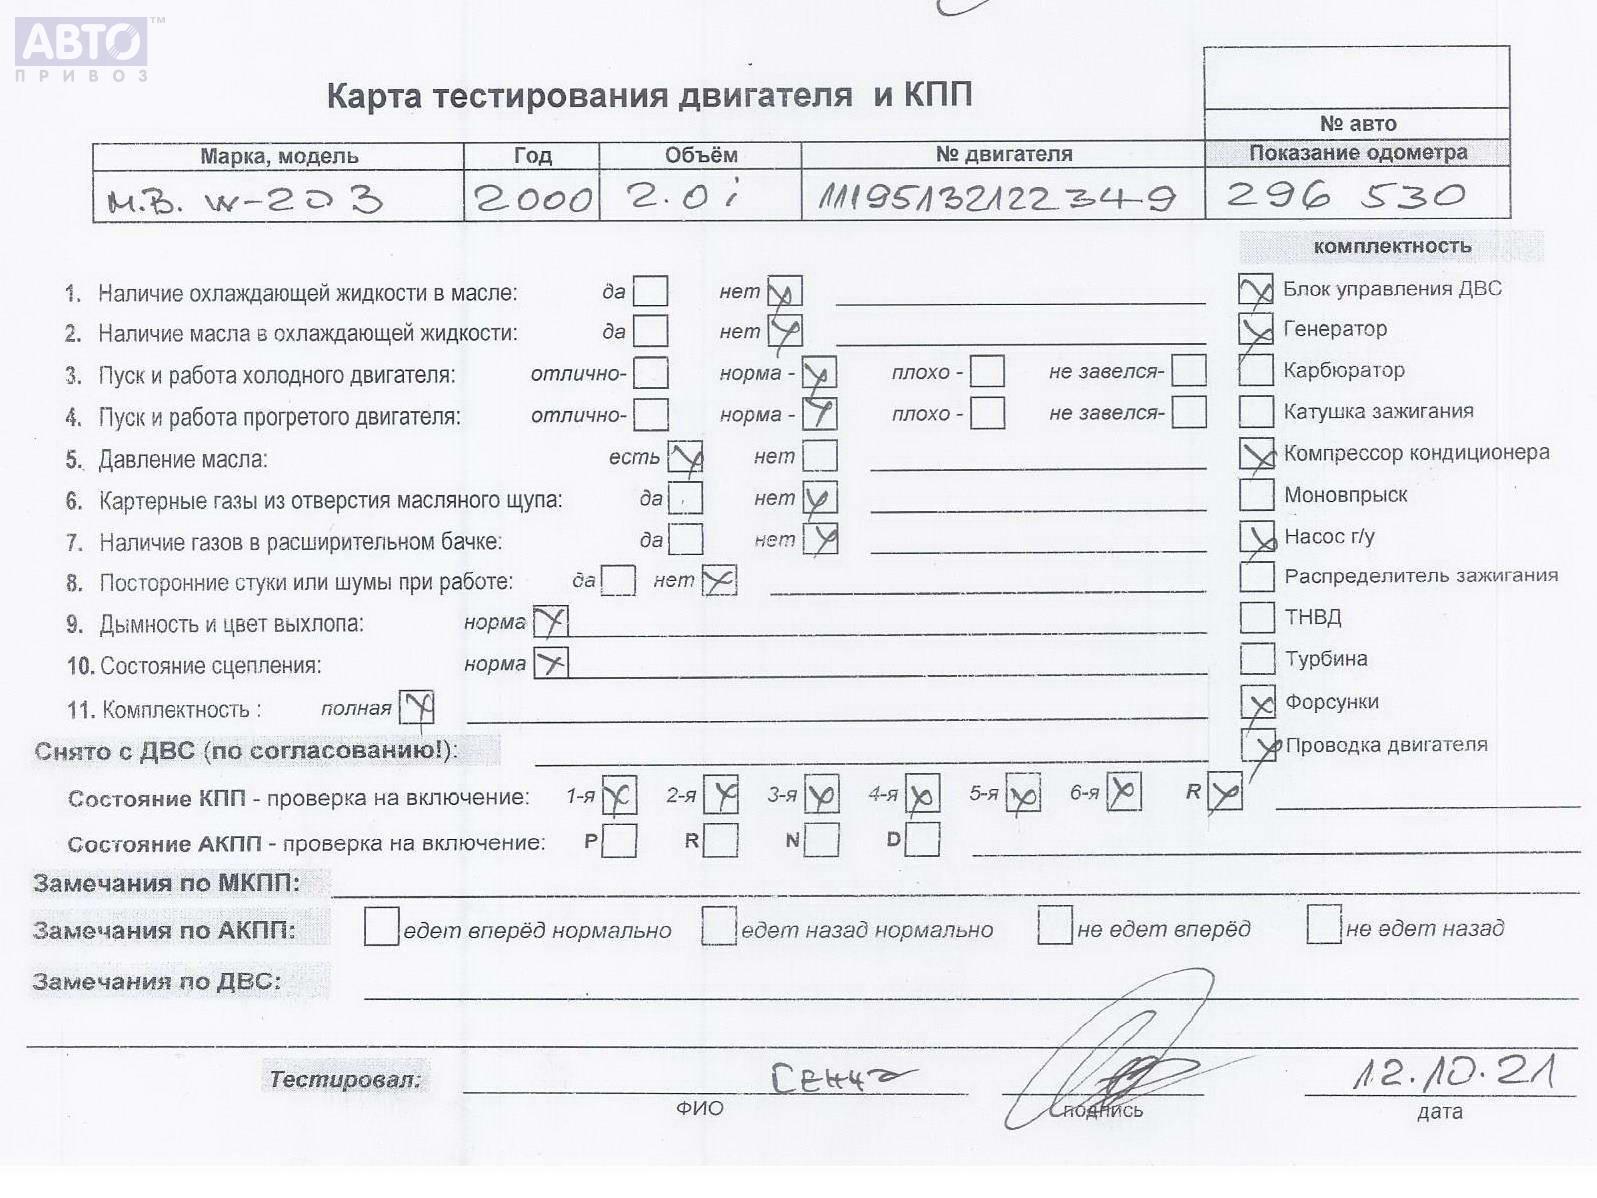 АВТО™
ПРИВОЗ
Карта тестирования двигателя и КПП
№ авто
Марка, модель Год Объём № двигателя Показание одометра
М.В. W-203 2000 2.0i 11195132122349 296 530
комплектность
1. Наличие охлаждающей жидкости в масле: да нет Блок управления ДВС
2. Наличие масла в охлаждающей жидкости: да нет Генератор
3. Пуск и работа холодного двигателя: отлично- норма - плохо - не завелся- Карбюратор
4. Пуск и работа прогретого двигателя: отлично- норма - плохо - не завелся- Катушка зажигания
5. Давление масла: есть нет Компрессор кондиционера
6. Картерные газы из отверстия масляного щупа: да нет Моновпрыск
7. Наличие газов в расширительном бачке: да нет Насос г/у
8. Посторонние стуки или шумы при работе: да нет Распределитель зажигания
9. Дымность и цвет выхлопа: норма ТНВД
10. Состояние сцепления: норма Турбина
11. Комплектность : полная Форсунки
Снято с ДВС (по согласованию!): Проводка двигателя
Состояние КПП - проверка на включение: 1-я 2-я 3-я 4-я 5-я 6-я R
Состояние АКПП - проверка на включение: P R N D
Замечания по МКПП:
Замечания по АКПП: едет вперёд нормально едет назад нормально не едет вперёд не едет назад
Замечания по ДВС:
Тестировал: 12.10.21
ФИО подпись дата